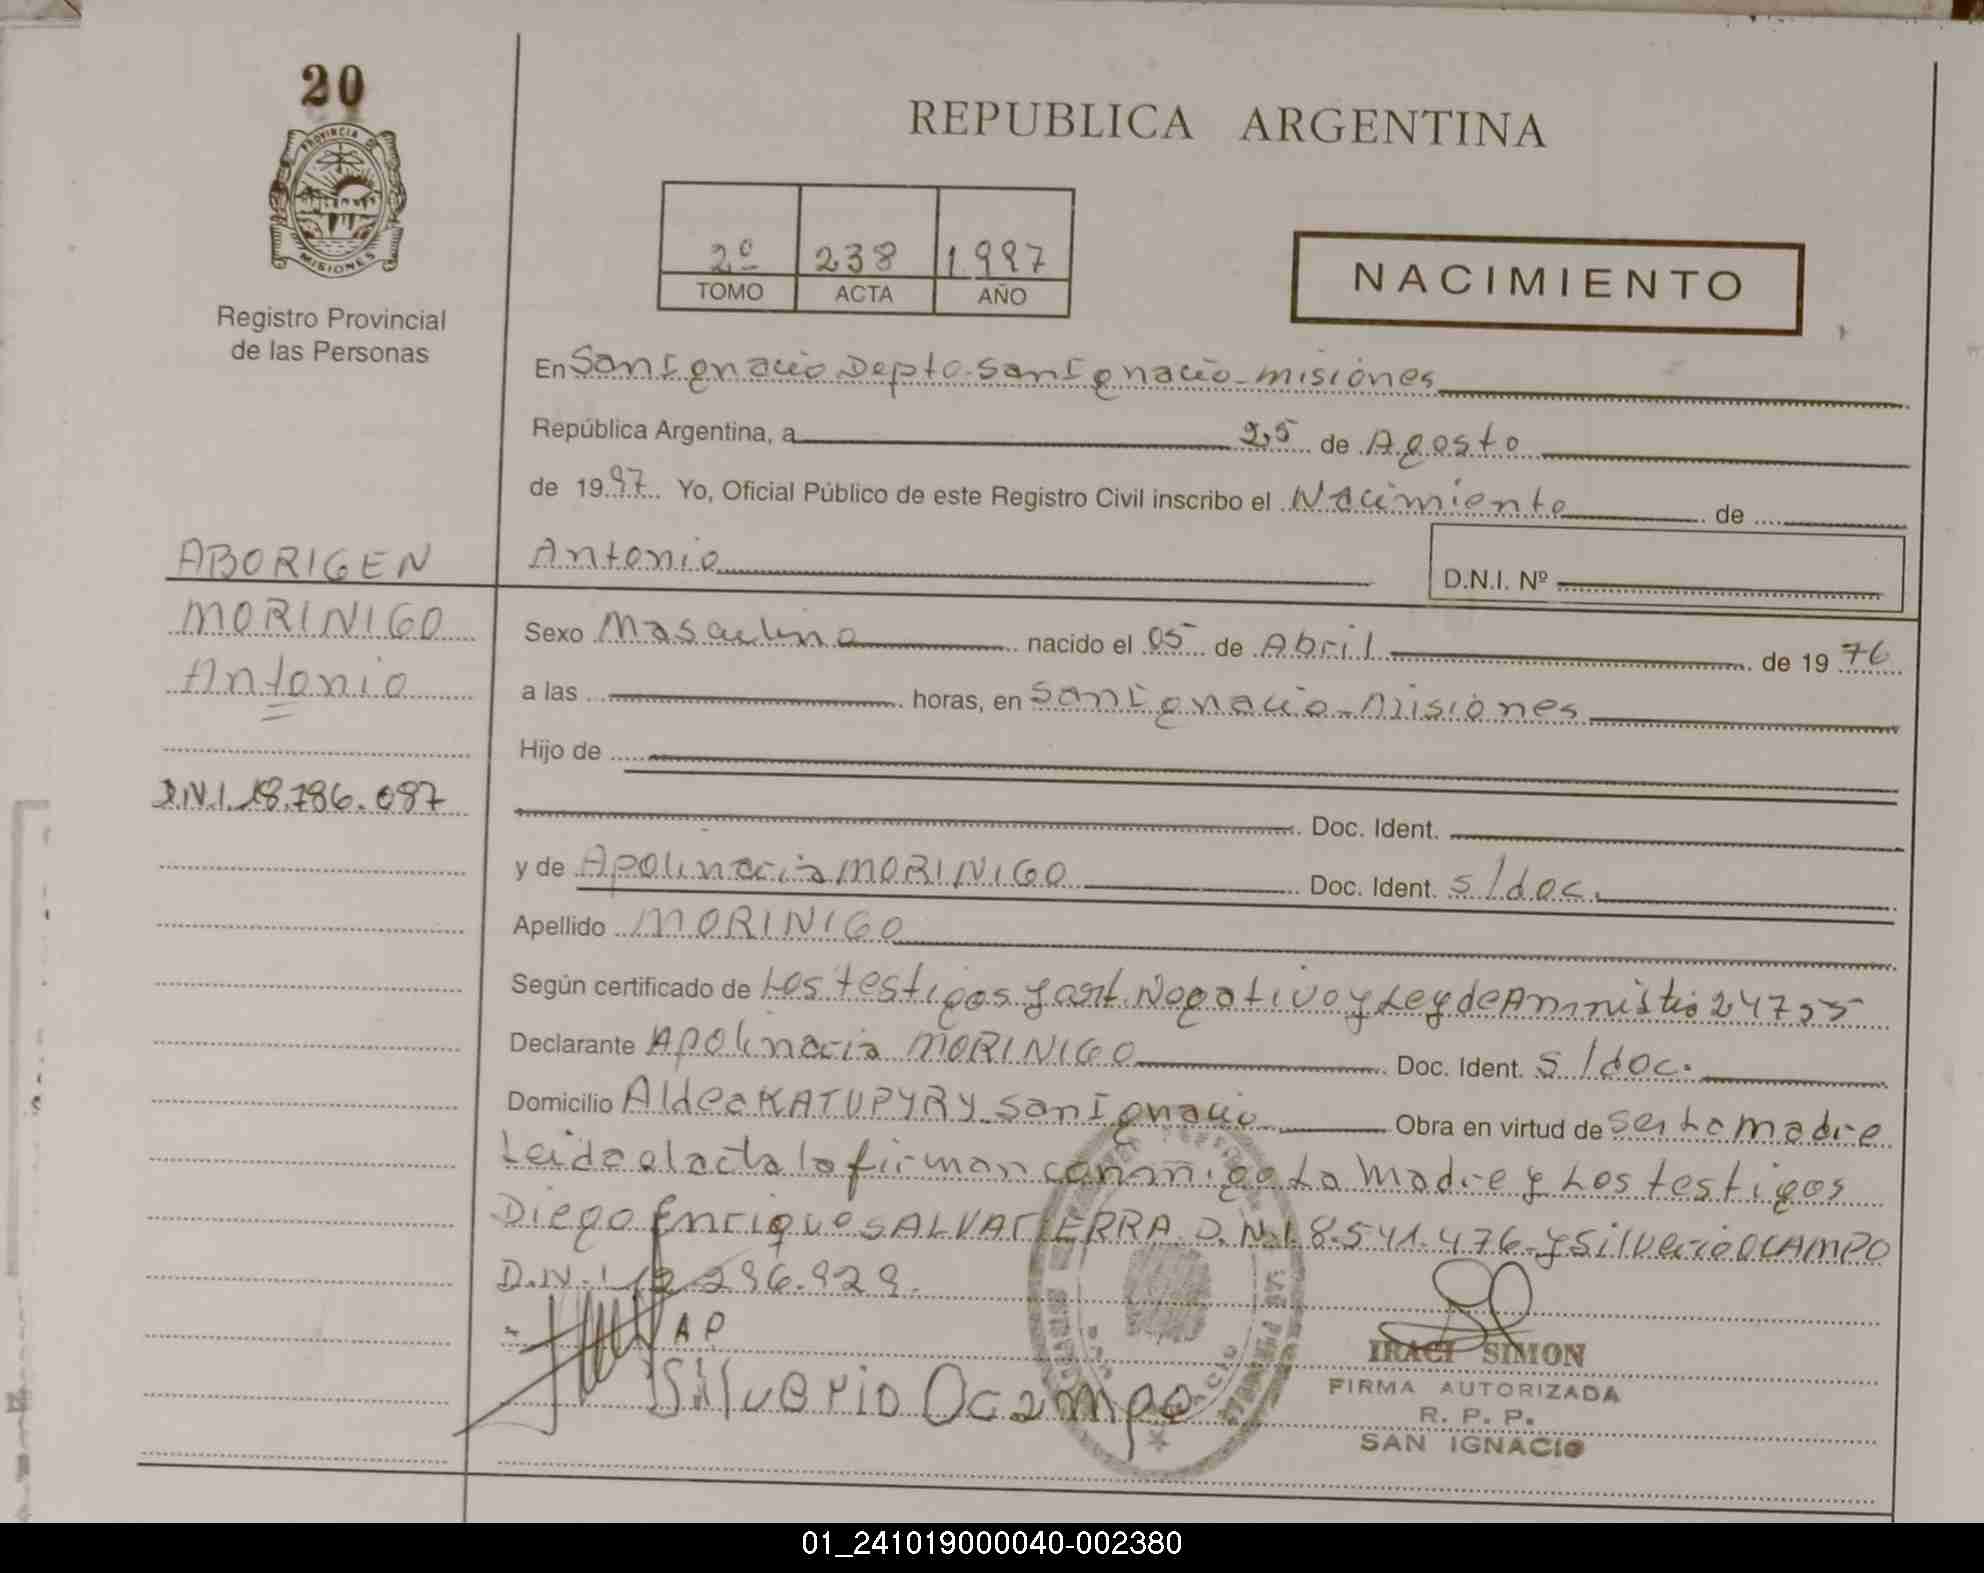 20
PROVINCIA DE
MISIONES
Registro Provincial
de las Personas
REPUBLICA ARGENTINA
2º 238 1.997
TOMO ACTA AÑO
NACIMIENTO
En San Ignacio Depto. San Ignacio - misiones
República Argentina, a 25 de Agosto
de 1997 Yo, Oficial Público de este Registro Civil inscribo el Nacimiento de
Antonio
D.N.I. Nº
ABORIGEN
MORINIGO
Antonio
D.N.I. 18.786.087
Sexo Masculino nacido el 05 de Abril de 1976
a las horas, en San Ignacio - Misiones
Hijo de
Doc. Ident.
y de Apolinacia MORINIGO Doc. Ident. s/doc.
Apellido MORINIGO
Según certificado de Los testigos y cert. Negativo y Ley de Amnistia 24755
Declarante Apolinacia MORINIGO Doc. Ident. s/doc.
Domicilio Aldea KATUPYRY San Ignacio Obra en virtud de ser La madre
Leida el acta la firman conmigo La Madre y Los testigos
Diego Enrique SALVATIERRA D.N.I. 8.541.476 y Silverio OCAMPO
D.N.I. 12.296.929.
AP
Silverio Ocampo
IRACI SIMON
FIRMA AUTORIZADA
R. P. P.
SAN IGNACIO
01_241019000040-002380